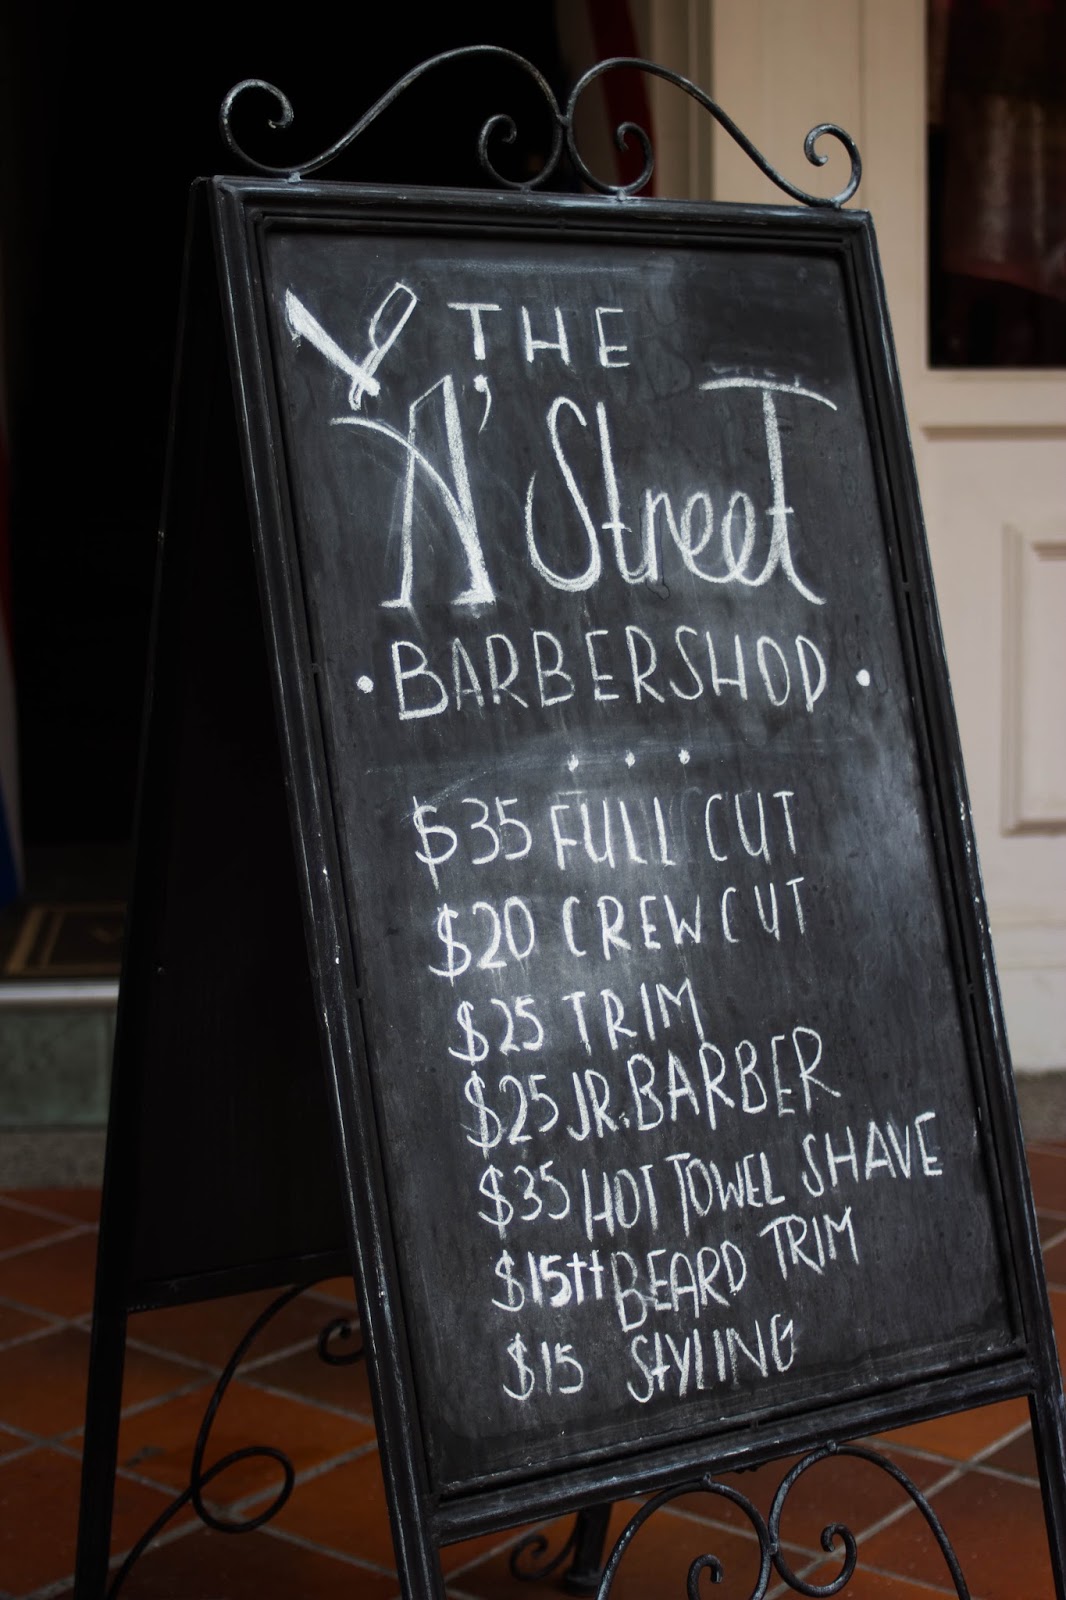 THE
'A' Street
• BARBERSHOP •
• • •
$35 FULL CUT
$20 CREW CUT
$25 TRIM
$25 JR. BARBER
$35 HOT TOWEL SHAVE
$15++ BEARD TRIM
$15 STYLING